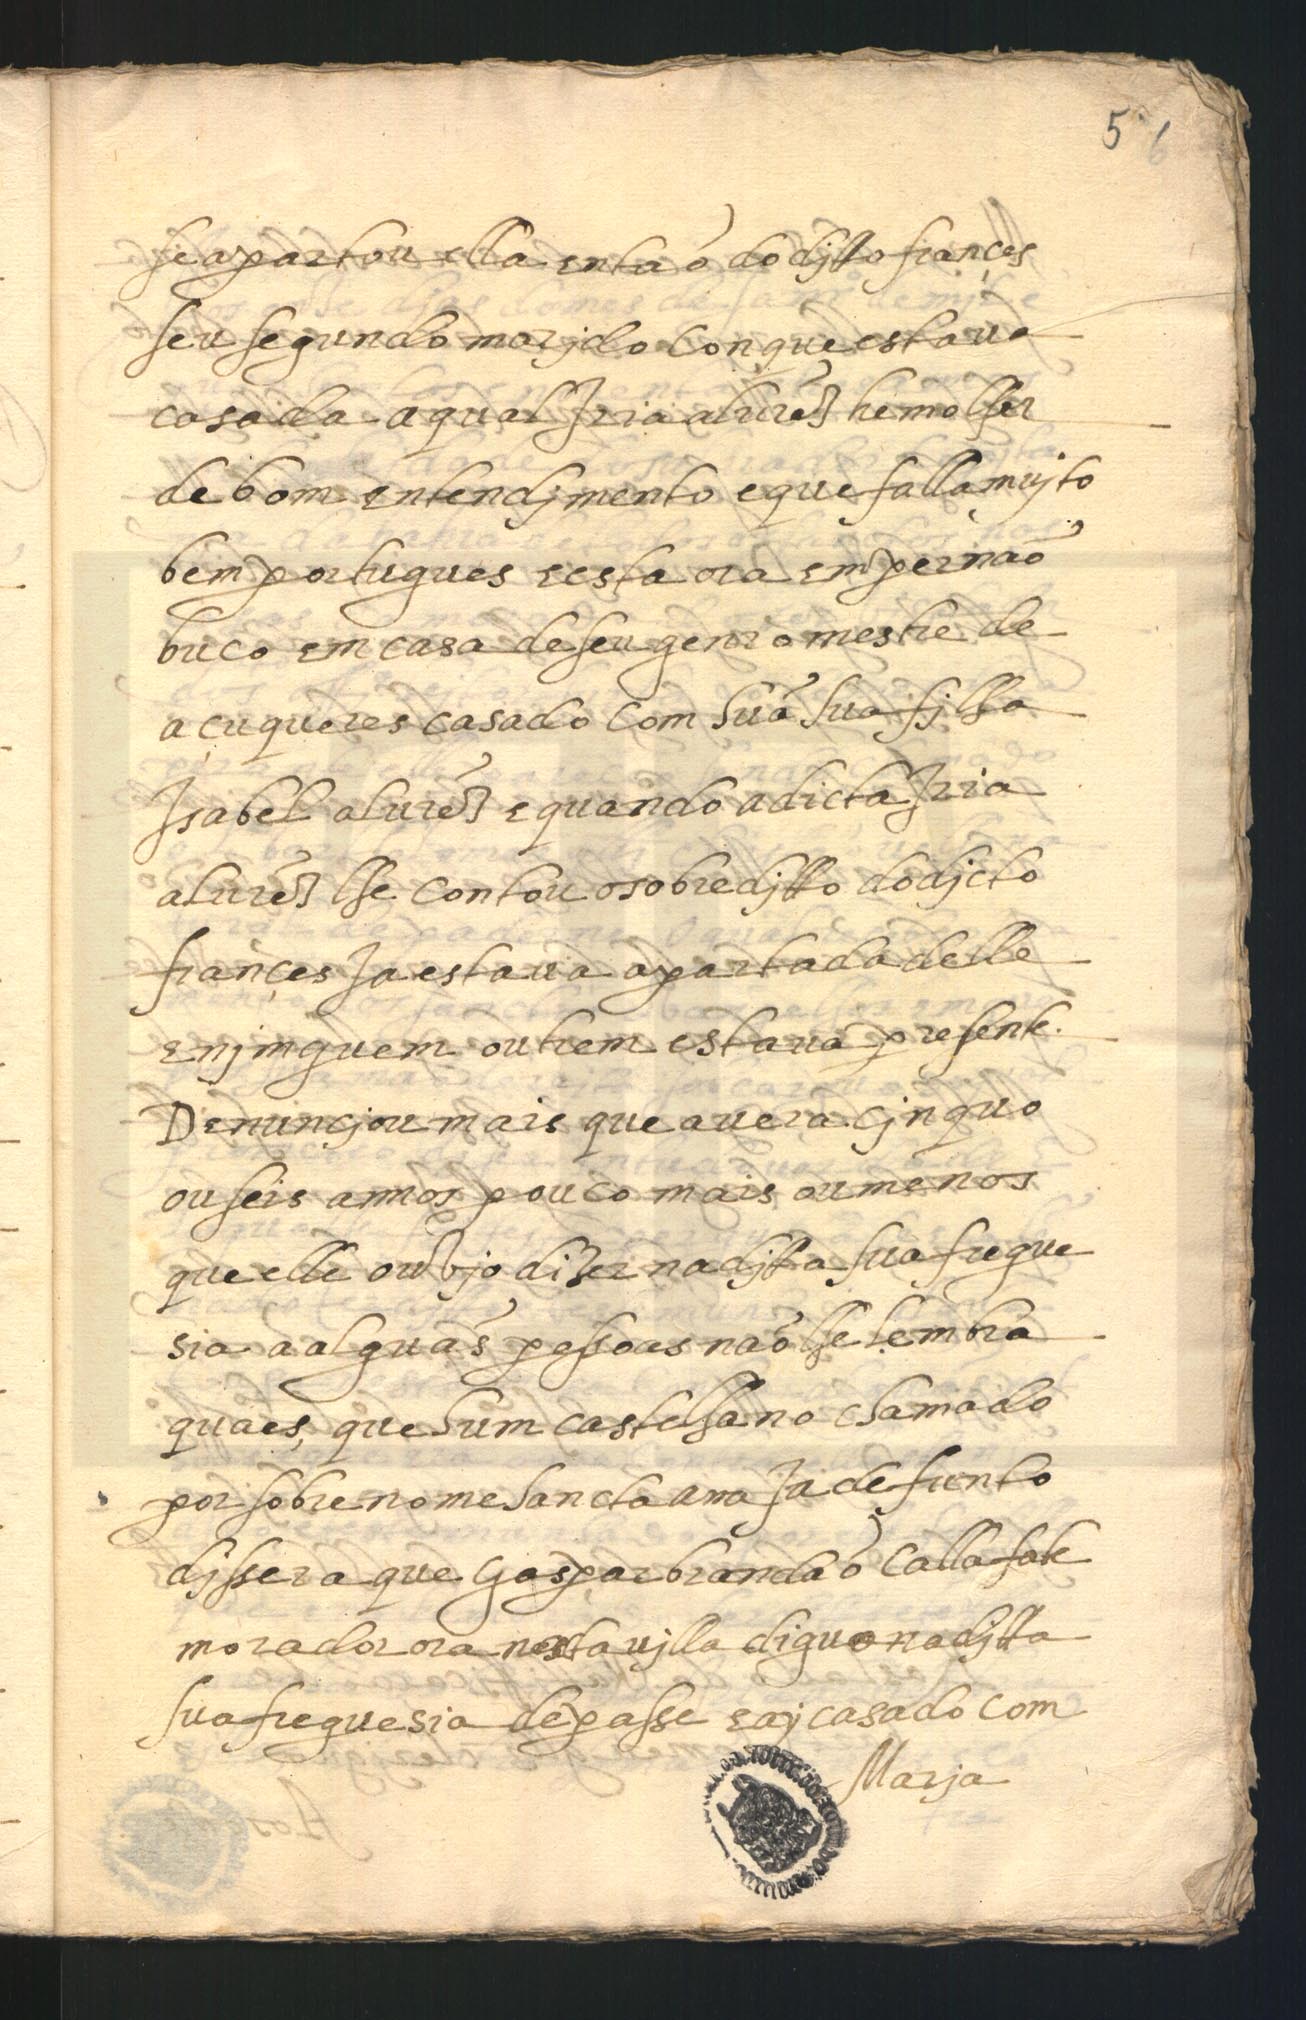 5 6
se apartou ella então do djtto françes
seu segundo marjdo con que estava
casada a qual Jria alurez he molher
de bom entendjmento e que falla mujto
bem portugues e esta ora em pernaõ
buco em casa de seu genrro mestre de
açuqueres casado com huã sua fjlha
Jsabel alurez e quando a dicta Jria
alurez lhe contou o sobredjtto do djcto
françes Ja estaua apartada delle
e njmguem outrem estaua presente.
Denuncjou mais que auera cjnquo
ou seis annos pouco mais ou menos
que elle ouvjo dizer na djtta sua fregue
sia a alguãs pessoas não lhe lembra
quaes, que hum castelhano chamado
por sobrenome sancta anna Ja defunto
djssera que Gaspar brandaõ callafate
morador ora nesta ujlla diguo na djtta
sua freguesia de passe e aj casado com
Marja